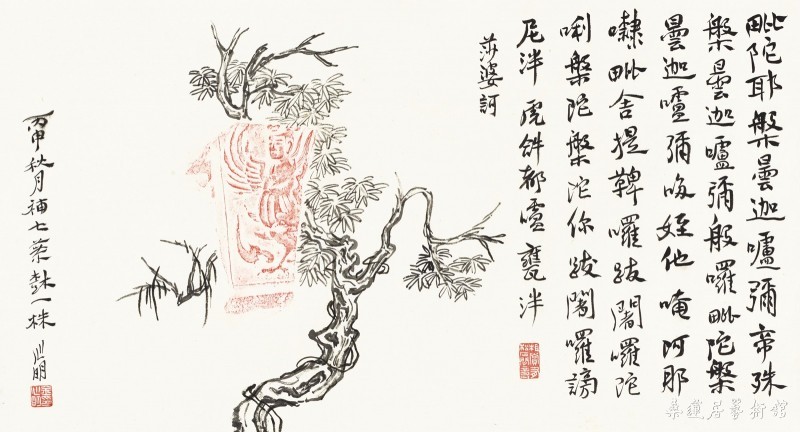 毗陀耶槃曇迦嚧彌帝殊
槃曇迦嚧彌般囉毗陀槃
曇迦嚧彌哆姪他唵阿那
㘑毗舍提鞞囉跋闍囉陀
唎槃陀槃陀你跋闍囉謗
尼泮虎𤙖都嚧甕泮
莎婆訶
丙申秋月補七葉樹一株
桑蓮居藝術館